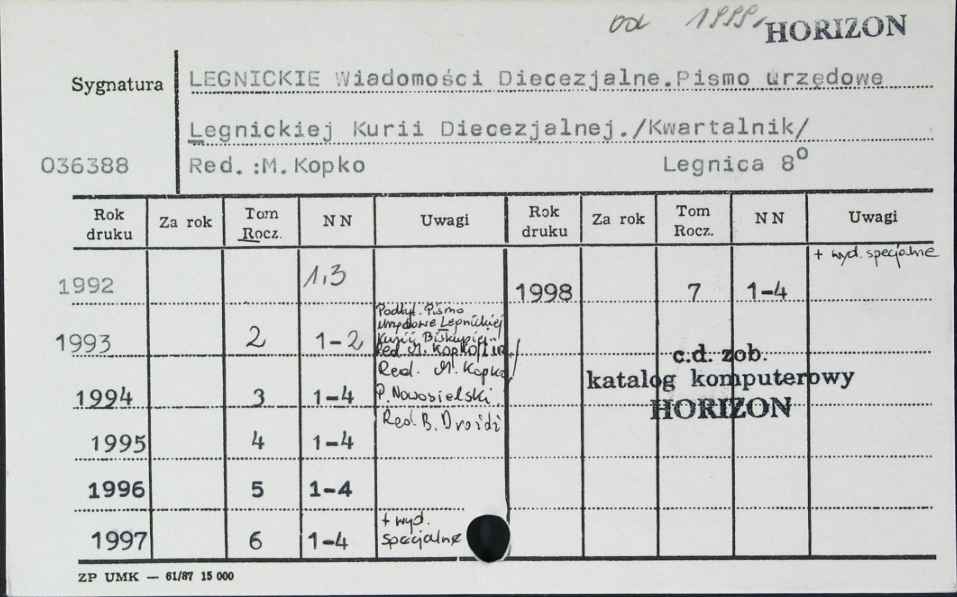 od 1999.
HORIZON
Sygnatura
LEGNICKIE Wiadomości Diecezjalne.Pismo urzędowe
Legnickiej Kurii Diecezjalnej./Kwartalnik/
036388
Red.:M.Kopko Legnica 8º
Rok druku Za rok Tom Rocz. NN Uwagi Rok druku Za rok Tom Rocz. NN Uwagi
1992 1,3
1998 7 1-4 + wyd. specjalne
1993 2 1-2
Podtyt. Pismo
urzędowe Legnickiej
Kurii Biskupiej
Red. M. Kopko
Red. M. Kopko/
1994 3 1-4 P. Nowosielski.
1995 4 1-4 Red. B. Drożdż
1996 5 1-4
1997 6 1-4 + wyd. specjalne
c.d. zob.
katalog komputerowy
HORIZON
ZP UMK — 61/87 15 000